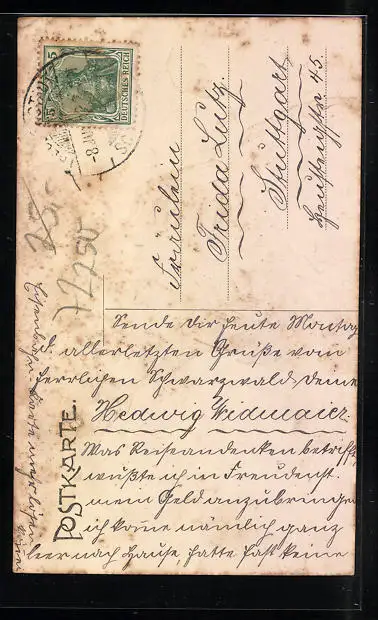 POSTKARTE.
DEUTSCHES REICH
5 5
Fräulein
Frida Lutz
Stuttgart
45.
75.-
72250
Sende Dir heute Montag
d. allerletzten Grüße vom
herrlichen Schwarzwald, Deine
Hedwig Widmaier.
Was Reiseandenken betrifft,
wüßte ich in Freudenst.
mein Geld anzubringen
ich komme nämlich ganz
leer nach Hause, hatte fast keine